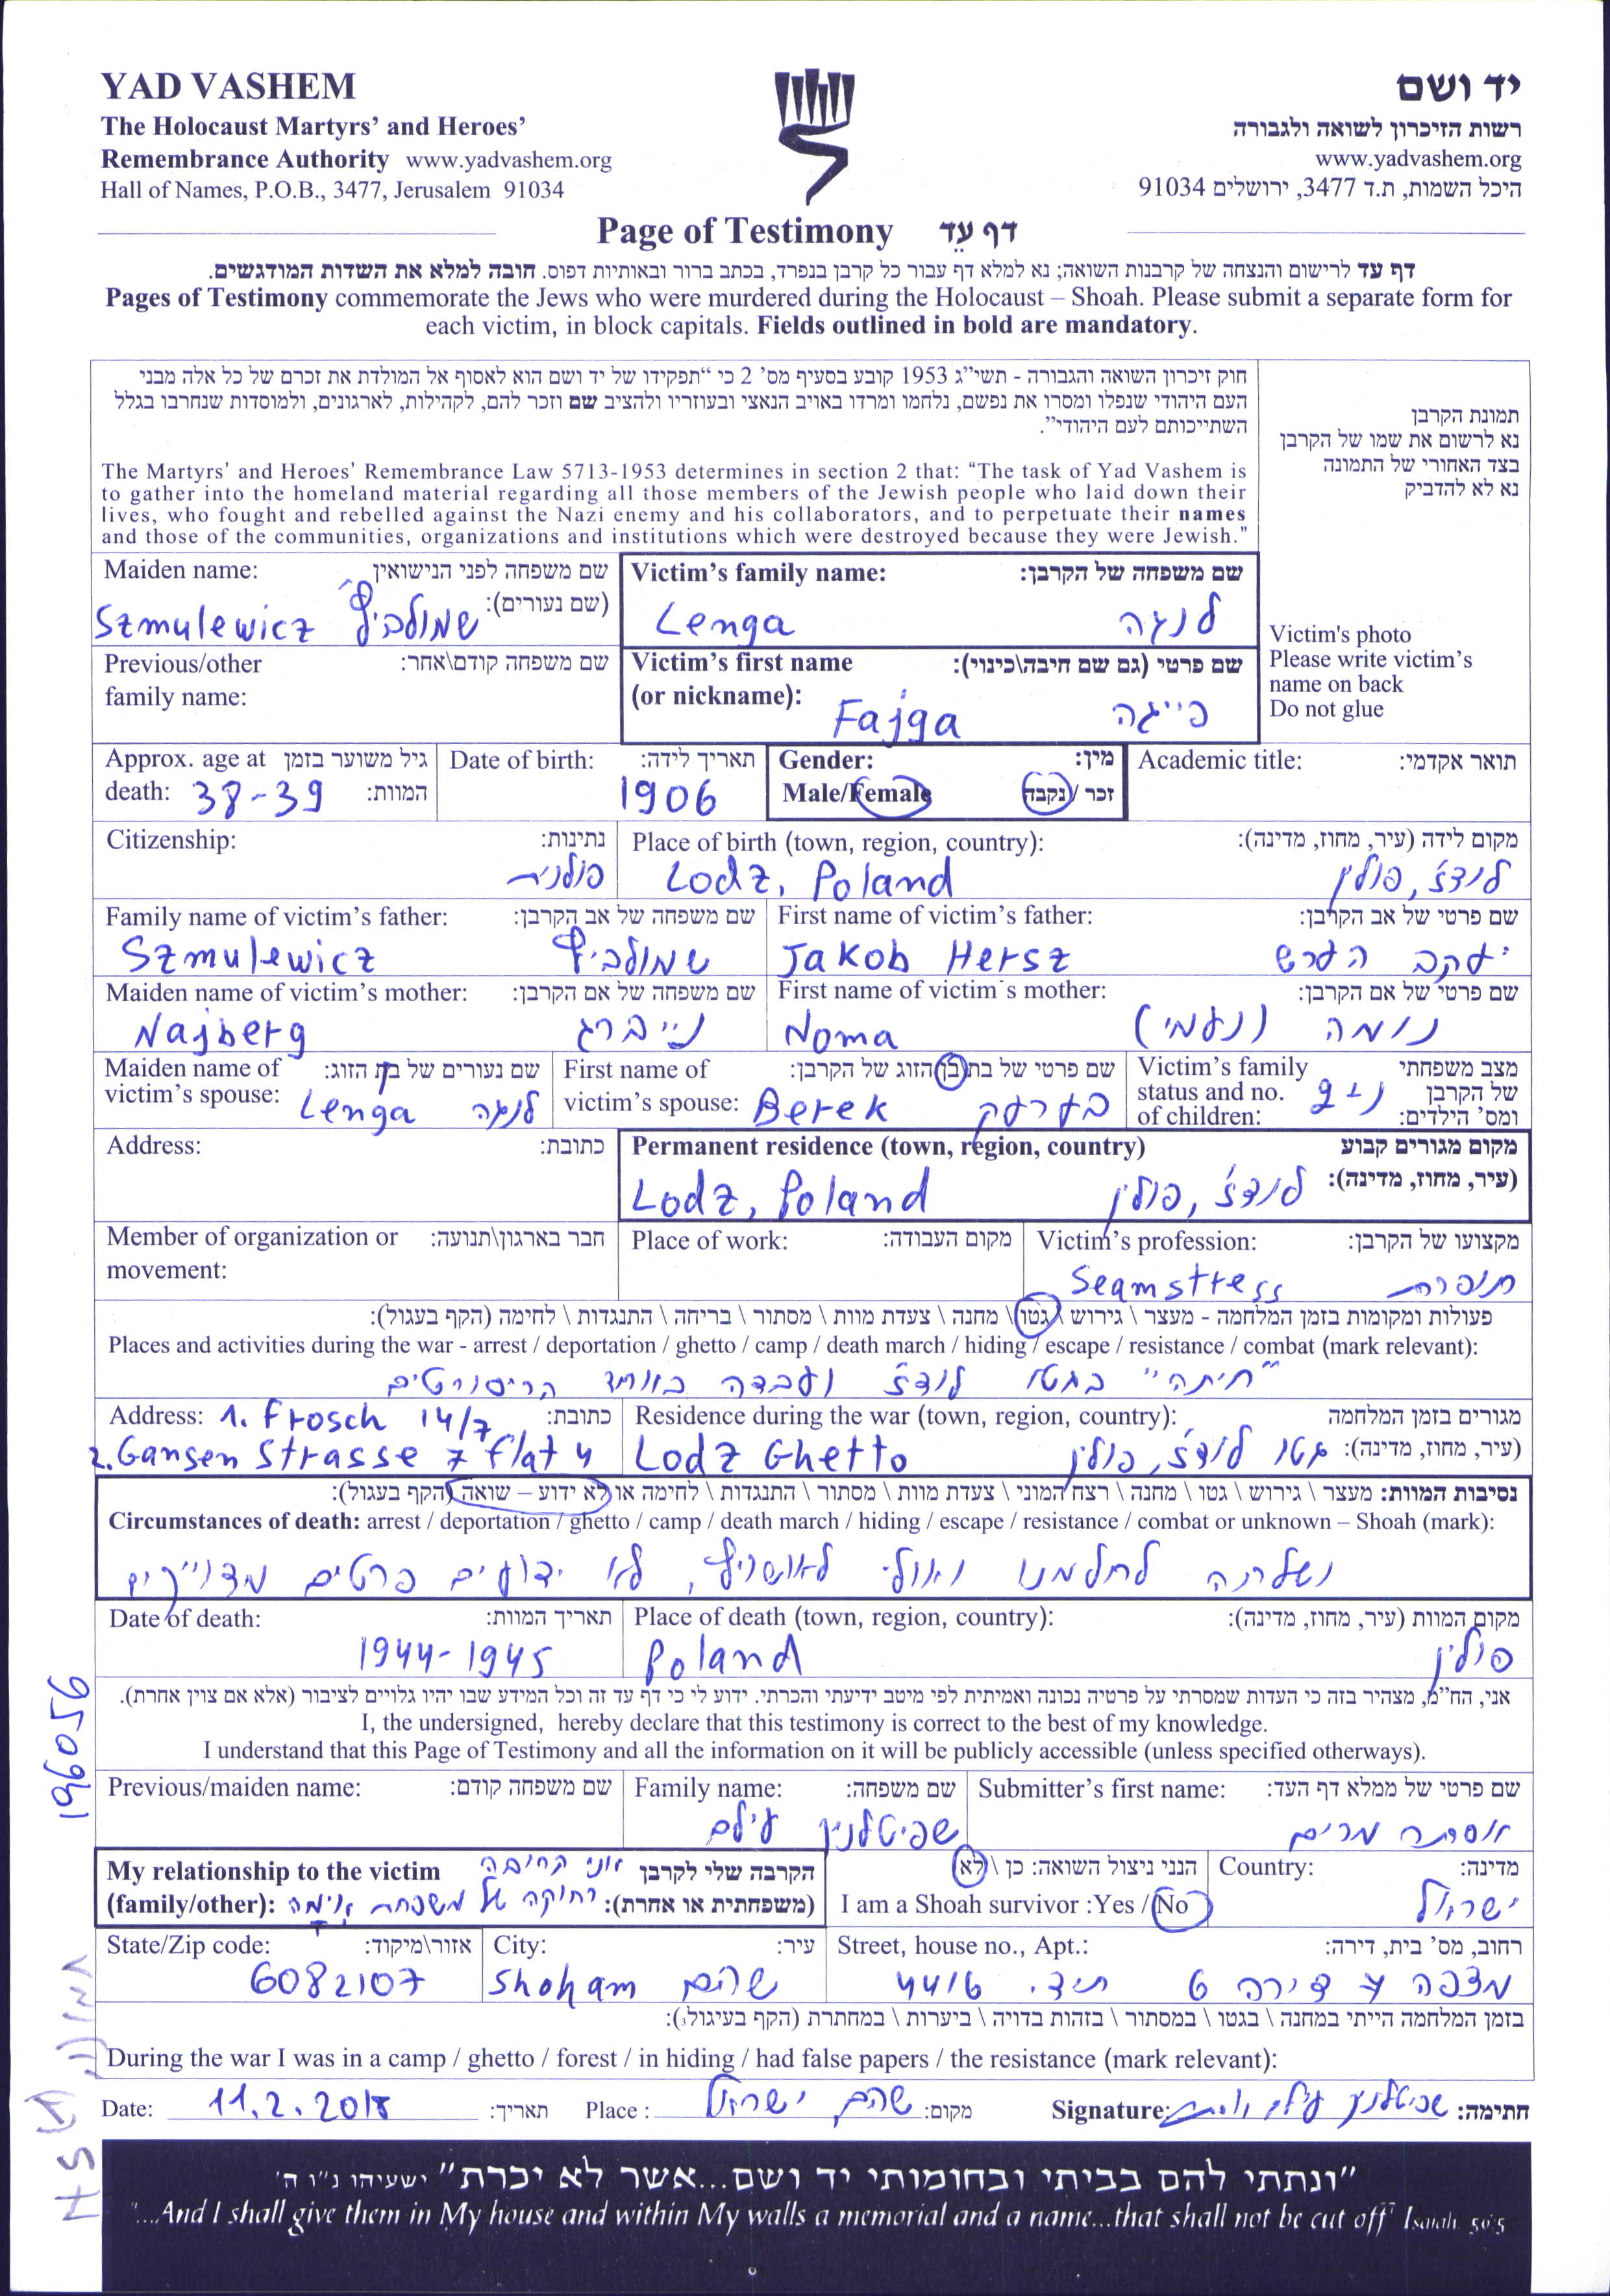 YAD VASHEM
The Holocaust Martyrs' and Heroes'
Remembrance Authority www.yadvashem.org
Hall of Names, P.O.B., 3477, Jerusalem 91034
יד ושם
רשות הזיכרון לשואה ולגבורה
www.yadvashem.org
היכל השמות, ת.ד 3477, ירושלים 91034
Page of Testimony דף עֵד
דף עד לרישום והנצחה של קרבנות השואה; נא למלא דף עבור כל קרבן בנפרד, בכתב ברור ובאותיות דפוס. חובה למלא את השדות המודגשים.
Pages of Testimony commemorate the Jews who were murdered during the Holocaust – Shoah. Please submit a separate form for
each victim, in block capitals. Fields outlined in bold are mandatory.
חוק זיכרון השואה והגבורה - תשי"ג 1953 קובע בסעיף מס' 2 כי "תפקידו של יד ושם הוא לאסוף אל המולדת את זכרם של כל אלה מבני
העם היהודי שנפלו ומסרו את נפשם, נלחמו ומרדו באויב הנאצי ובעוזריו ולהציב שם וזכר להם, לקהילות, לארגונים, ולמוסדות שנחרבו בגלל
השתייכותם לעם היהודי".
The Martyrs' and Heroes' Remembrance Law 5713-1953 determines in section 2 that: "The task of Yad Vashem is
to gather into the homeland material regarding all those members of the Jewish people who laid down their
lives, who fought and rebelled against the Nazi enemy and his collaborators, and to perpetuate their names
and those of the communities, organizations and institutions which were destroyed because they were Jewish."
תמונת הקרבן
נא לרשום את שמו של הקרבן
בצד האחורי של התמונה
נא לא להדביק
Victim's photo
Please write victim's
name on back
Do not glue
Maiden name: שם משפחה לפני הנישואין
(שם נעורים):
Szmulewicz שמולביץ'
Victim's family name: שם משפחה של הקרבן:
Lenga לנגה
Previous/other שם משפחה קודם\אחר:
family name:
Victim's first name שם פרטי (גם שם חיבה\כינוי):
(or nickname):
Fajga פייגה
Approx. age at גיל משוער בזמן
death: 38-39 המוות:
Date of birth: תאריך לידה:
1906
Gender: מין:
Male/Female זכר / נקבה
Academic title: תואר אקדמי:
Citizenship: נתינות:
פולנית
Place of birth (town, region, country): מקום לידה (עיר, מחוז, מדינה):
Lodz, Poland לודז', פולין
Family name of victim's father: שם משפחה של אב הקרבן:
Szmulewicz שמולביץ'
First name of victim's father: שם פרטי של אב הקרבן:
Jakob Hersz יעקב הערש
Maiden name of victim's mother: שם משפחה של אם הקרבן:
Najberg נייברג
First name of victim's mother: שם פרטי של אם הקרבן:
Noma נומה (נעמי)
Maiden name of שם נעורים של בת הזוג:
victim's spouse: Lenga לנגה
First name of שם פרטי של בת\בן הזוג של הקרבן:
victim's spouse: Berek בערעק
Victim's family מצב משפחתי
status and no. של הקרבן
of children: ומס' הילדים:
נ+2
Address: כתובת:
Permanent residence (town, region, country) מקום מגורים קבוע
(עיר, מחוז, מדינה):
Lodz, Poland לודז', פולין
Member of organization or חבר בארגון\תנועה:
movement:
Place of work: מקום העבודה:
Victim's profession: מקצועו של הקרבן:
Seamstress תופרת
פעולות ומקומות בזמן המלחמה - מעצר \ גירוש \ גטו \ מחנה \ צעדת מוות \ מסתור \ בריחה \ התנגדות \ לחימה (הקף בעגול):
Places and activities during the war - arrest / deportation / ghetto / camp / death march / hiding / escape / resistance / combat (mark relevant):
"חיתה" בגטו לודז' ועבדה
Address: 1. Frosch 14/7 כתובת:
2. Gansen Strasse 7 flat 4
Residence during the war (town, region, country): מגורים בזמן המלחמה
(עיר, מחוז, מדינה):
Lodz Ghetto גטו לודז', פולין
נסיבות המוות: מעצר \ גירוש \ גטו \ מחנה \ רצח המוני \ צעדת מוות \ מסתור \ התנגדות \ לחימה או לא ידוע – שואה (הקף בעגול):
Circumstances of death: arrest / deportation / ghetto / camp / death march / hiding / escape / resistance / combat or unknown – Shoah (mark):
נשלחה לחלמנו ואולי לאושוויץ, לא ידועים פרטים מדוייקים
Date of death: תאריך המוות:
1944-1945
Place of death (town, region, country): מקום המוות (עיר, מחוז, מדינה):
Poland פולין
אני, הח"מ, מצהיר בזה כי העדות שמסרתי על פרטיה נכונה ואמיתית לפי מיטב ידיעתי והכרתי. ידוע לי כי דף עד זה וכל המידע שבו יהיו גלויים לציבור (אלא אם צוין אחרת).
I, the undersigned, hereby declare that this testimony is correct to the best of my knowledge.
I understand that this Page of Testimony and all the information on it will be publicly accessible (unless specified otherways).
196056
Previous/maiden name: שם משפחה קודם:
Family name: שם משפחה:
שפיטלניק עילם
Submitter's first name: שם פרטי של ממלא דף העד:
אסתר מרים
My relationship to the victim הקרבה שלי לקרבן
(family/other): (משפחתית או אחרת):
אני קרובה
רחוקה של משפחת אימה
I am a Shoah survivor :Yes / No הנני ניצול השואה: כן \ לא
Country: מדינה:
ישראל
State/Zip code: אזור\מיקוד:
6082107
City: עיר:
Shoham שהם
Street, house no., Apt.: רחוב, מס' בית, דירה:
מצפה 4 דירה 6 ת.ד. 4416
בזמן המלחמה הייתי במחנה \ בגטו \ במסתור \ בזהות בדויה \ ביערות \ במחתרת (הקף בעיגול):
During the war I was in a camp / ghetto / forest / in hiding / had false papers / the resistance (mark relevant):
Date: 11.2.2018 תאריך:
Place: שהם ישראל מקום:
Signature: שפיטלניק עילם חתימה:
"ונתתי להם בביתי ובחומותי יד ושם...אשר לא יכרת" ישעיהו נ"ו ה'
"...And I shall give them in My house and within My walls a memorial and a name...that shall not be cut off" Isaiah 56:5